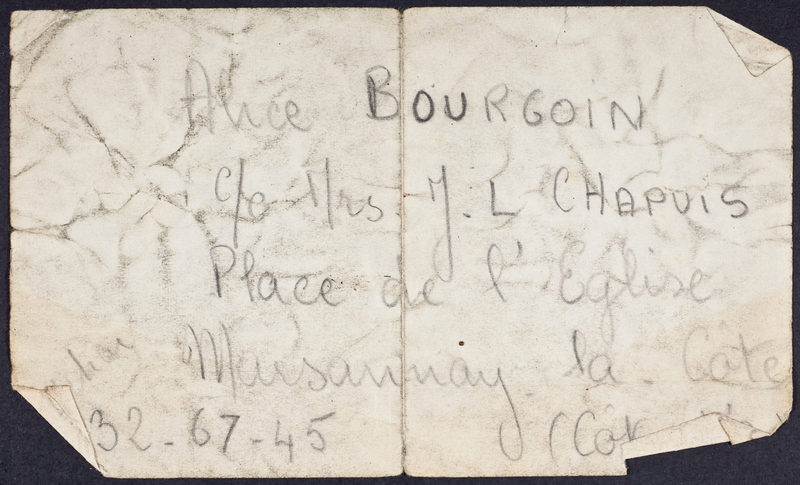 Alice BOURGOIN
c/o Mrs. J. L CHAPUIS
Place de l'Eglise
Marsannay. la. Côte
32-67-45 (Côt